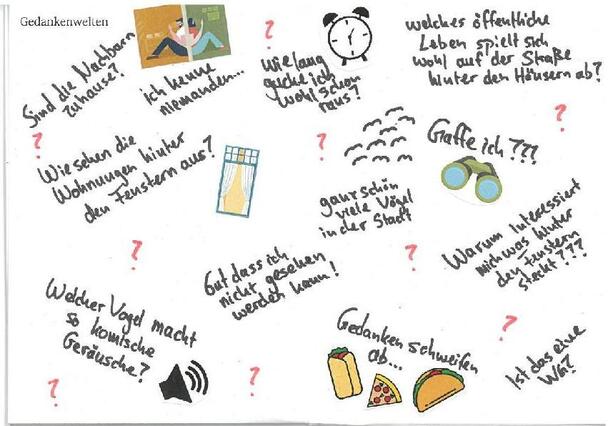 Gedankenwelten
Sind die Nachbarn
zuhause?
ich kenne
niemanden...
?
wie lang
gucke ich
wohl schon
raus?
welches öffentliche
Leben spielt sich
wohl auf der Straße
hinter den Häusern ab?
?
Wie sehen die
Wohnungen hinter
den Fenstern aus?
?
ganz schön
viele Vögel
in der Stadt
Gaffe ich???
?
Warum interessiert
mich was hinter
den Fenstern
steckt???
?
Gut dass ich
nicht gesehen
werden kann!
?
Welcher Vogel macht
so komische
Geräusche?
?
?
Gedanken schweifen
ab...
?
Ist das eine
WG?